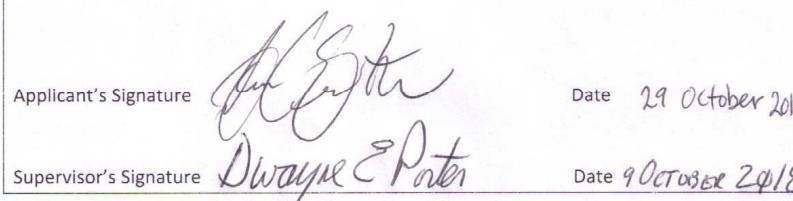 Applicant's Signature Date 29 October 201
Supervisor's Signature Dwayne E Porter Date 9 OCTOBER 2018